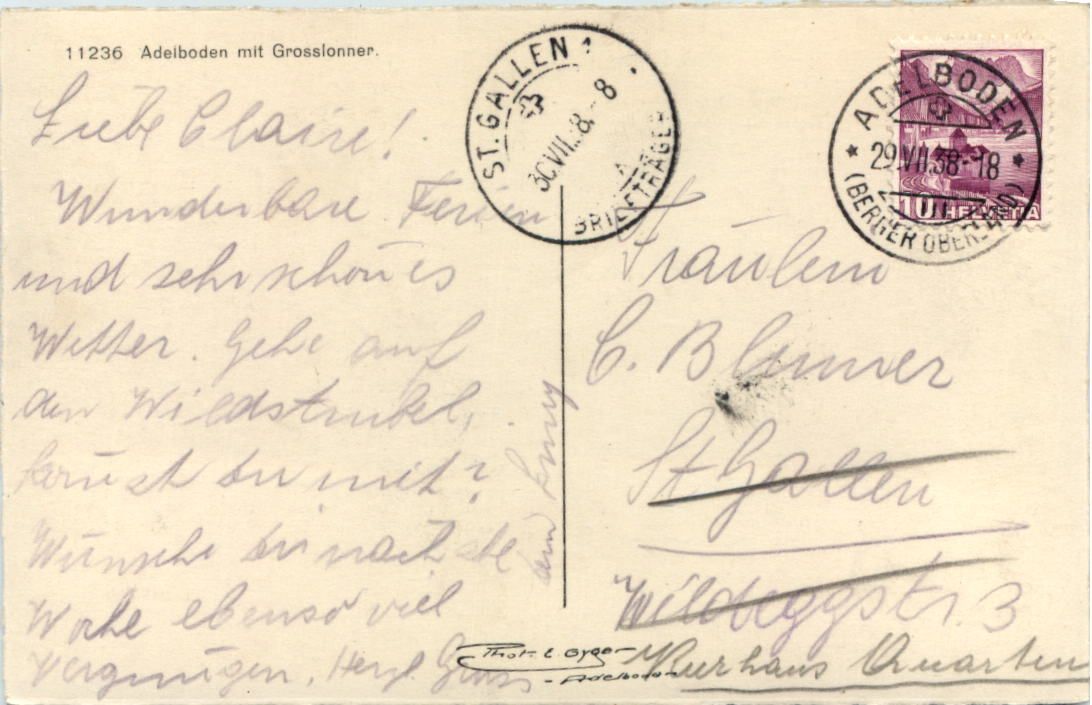 11236 Adelboden mit Grosslonner.
Liebe Claire!
Wunderbare Ferien
und sehr schönes
Wetter. Gehe auf
den Wildstrubel,
kommst du mit?
Wünsche dir nächste
Woche ebenso viel
Vergnügen, Herzl. Gruss
dein
ST. GALLEN 1
30.VII.38.-8
BRIEFTRÄGER
ADELBODEN
29.VII.38-18
(BERNER OBERLAND)
10 HELVETIA
Fräulein
C. Blumer
St Gallen
Wildeggstr. 3
Kurhaus Quarten
Phot. E. Gyger
Adelboden